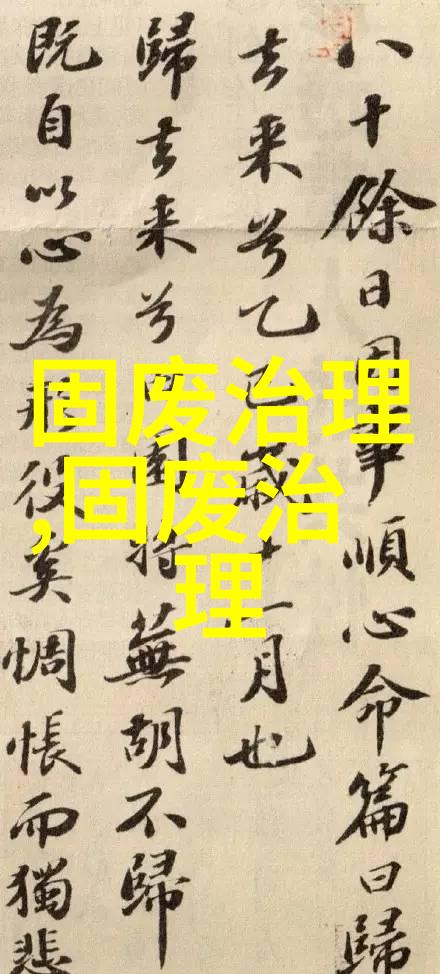 八十餘日因事順心命篇曰歸
去来兮乙巳歲十一月也
歸去来兮田園将蕪胡不歸
既自以心為形役奚惆悵而獨悲
固废治理
,固废治
理